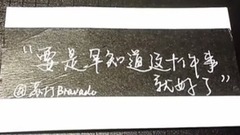 “要是早知道这十件事
就好了”
@苏打Bravado